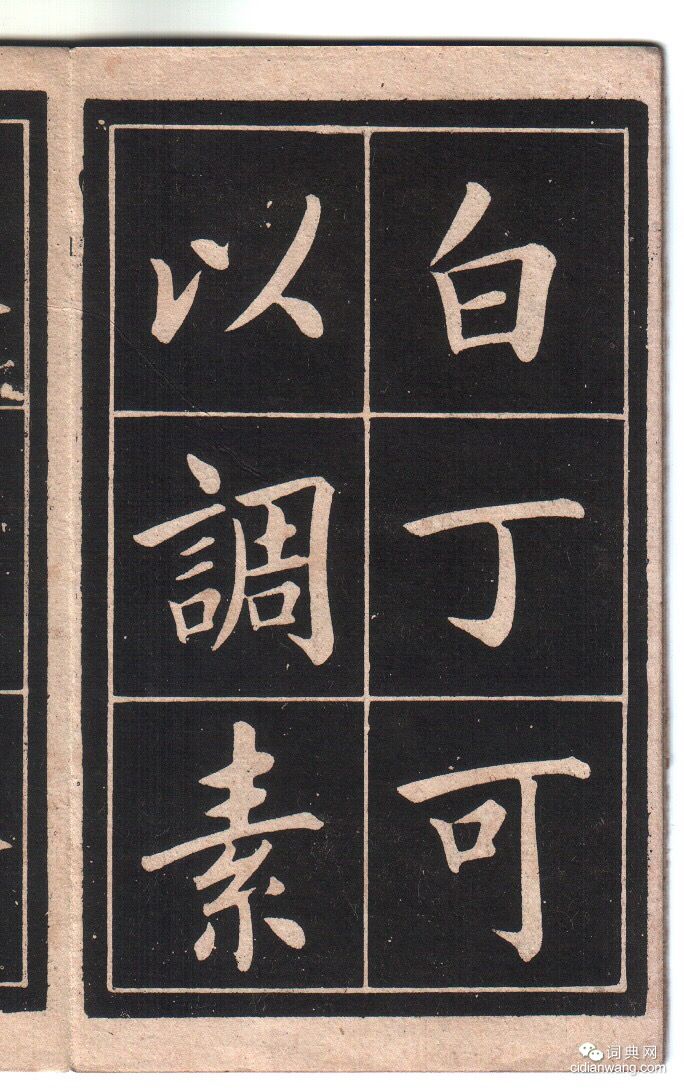 白丁可
以調素
词典网
cidianwang.com